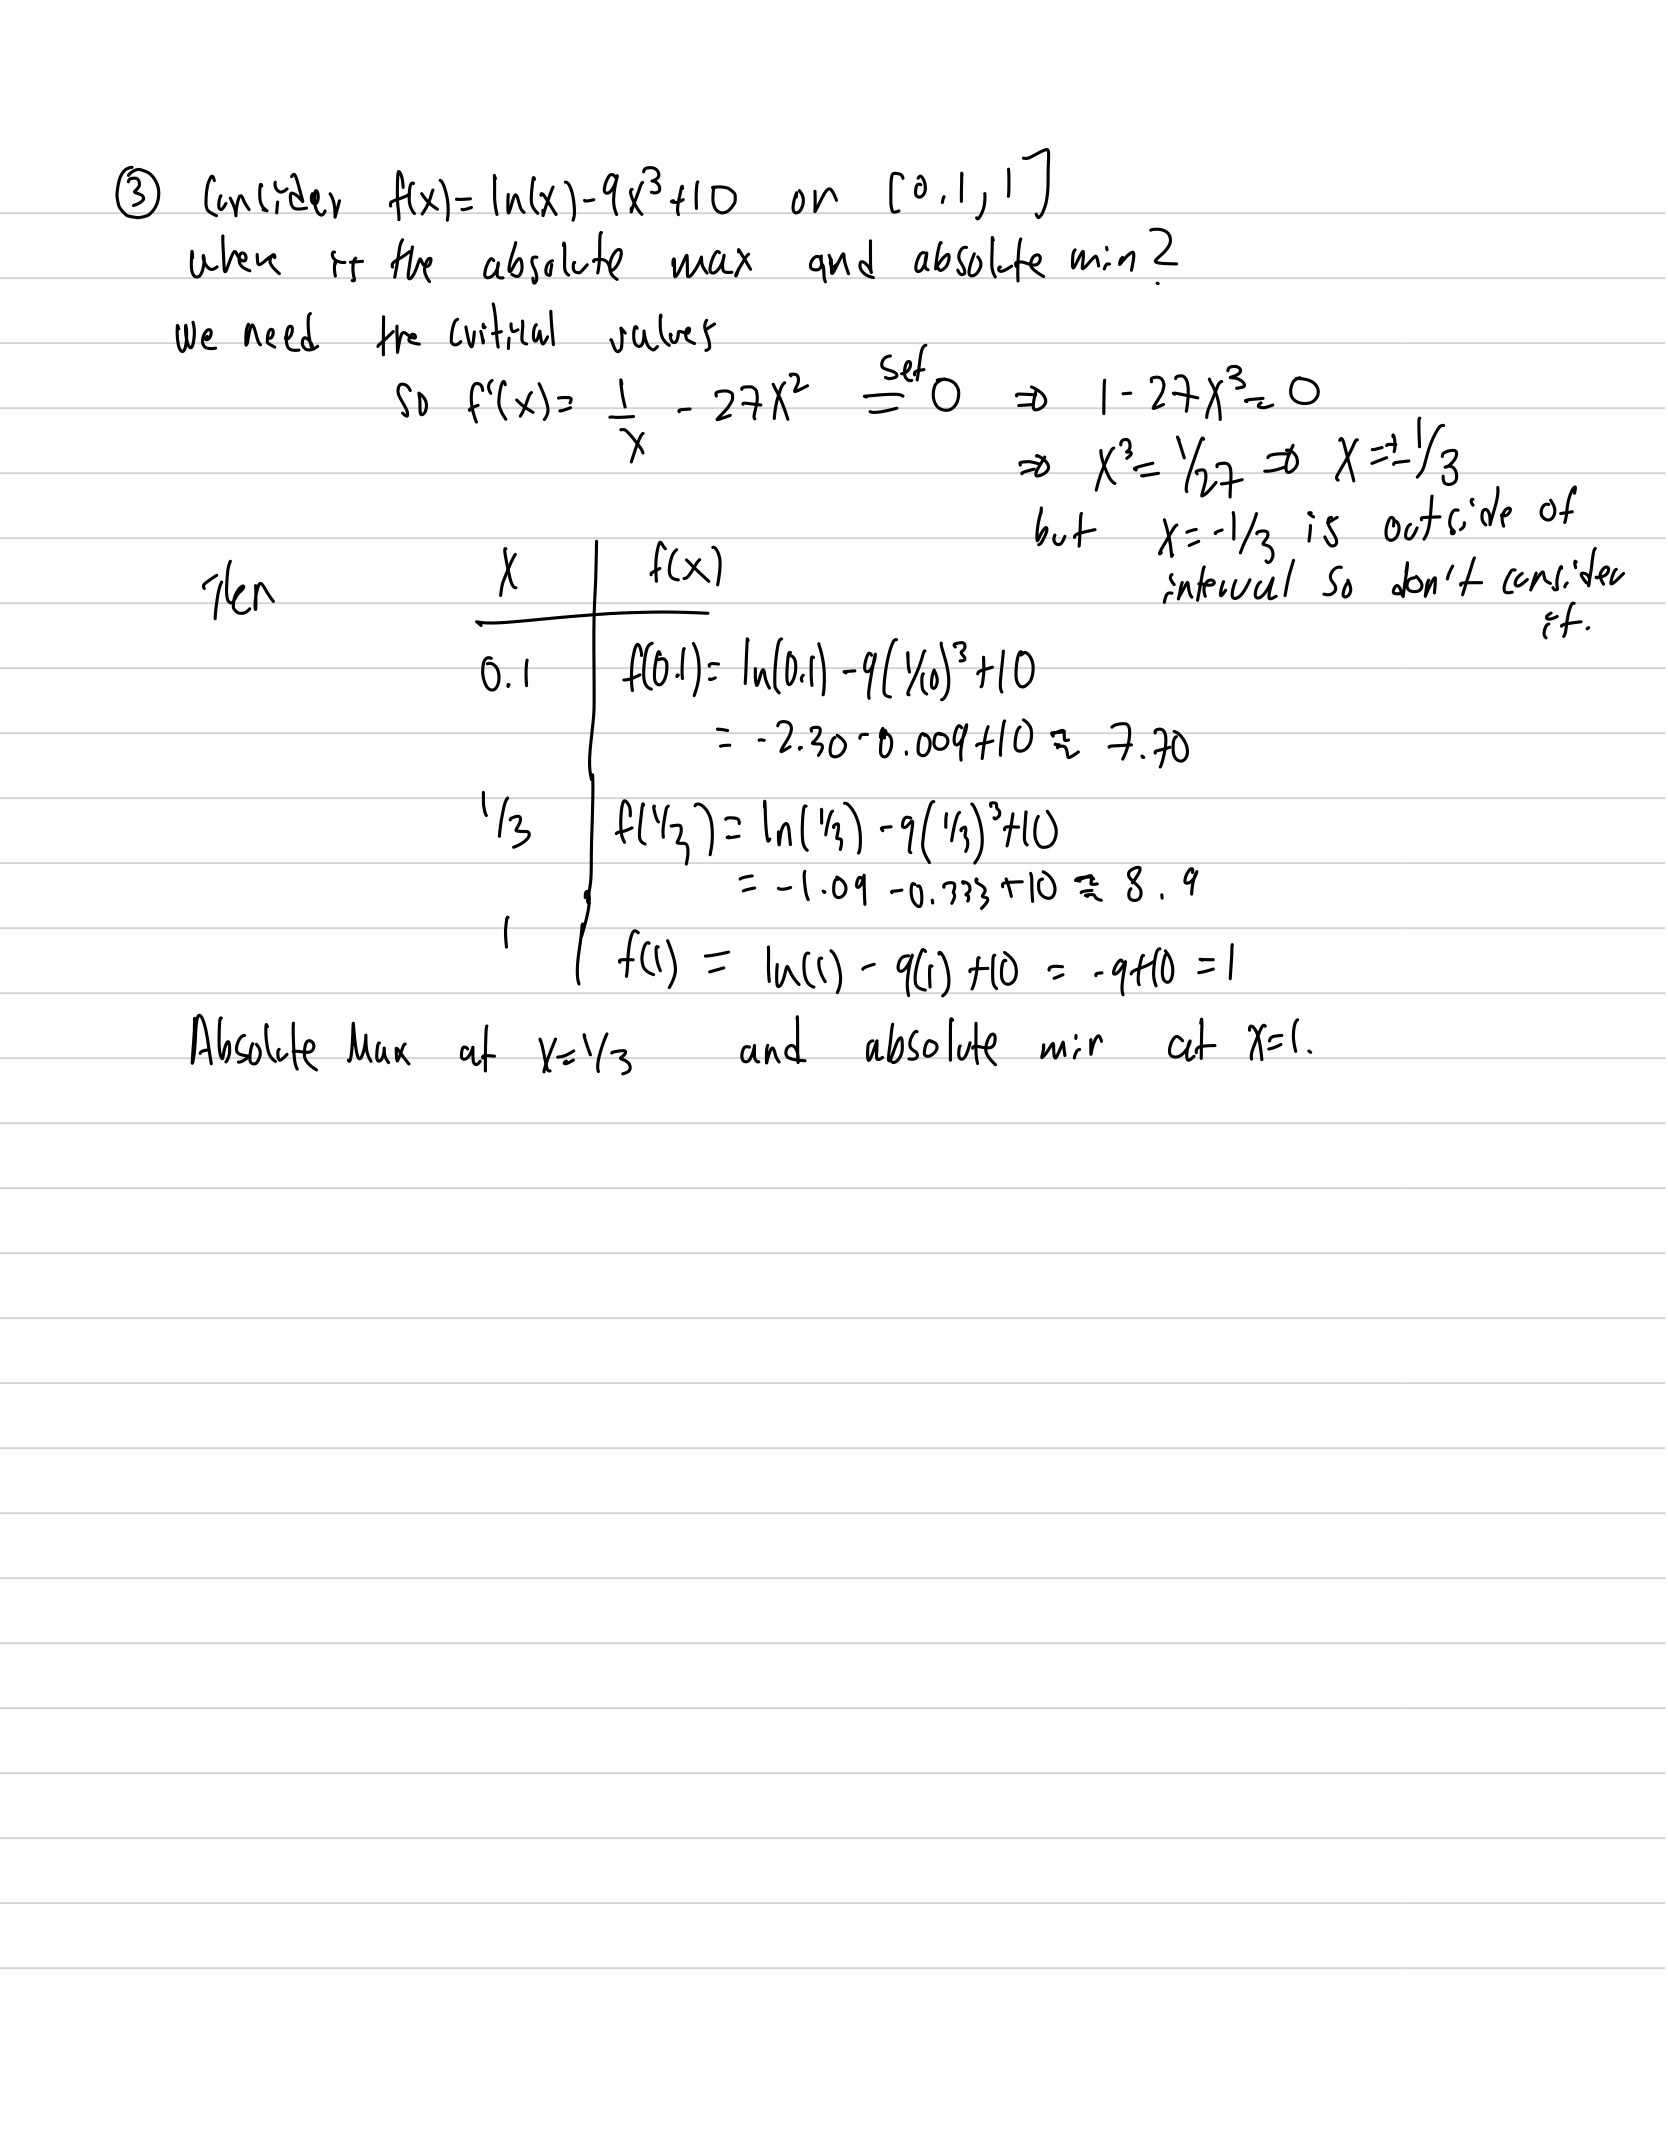 ③ Consider f(x) = ln(x) - 9x³ + 10 on [0.1, 1]
where is the absolute max and absolute min?
we need the critical values
so f'(x) = 1/x - 27x² set = 0 ⇒ 1 - 27x³ = 0
⇒ x³ = 1/27 ⇒ x = ± 1/3
but x = -1/3 is outside of
interval so don't consider
it.
Then x | f(x)
0.1 | f(0.1) = ln(0.1) - 9(1/10)³ + 10
= -2.30 - 0.009 + 10 ≈ 7.70
1/3 | f(1/3) = ln(1/3) - 9(1/3)³ + 10
= -1.09 - 0.333 + 10 ≈ 8.9
1 | f(1) = ln(1) - 9(1) + 10 = -9 + 10 = 1
Absolute Max at x = 1/3 and absolute min at x = 1.